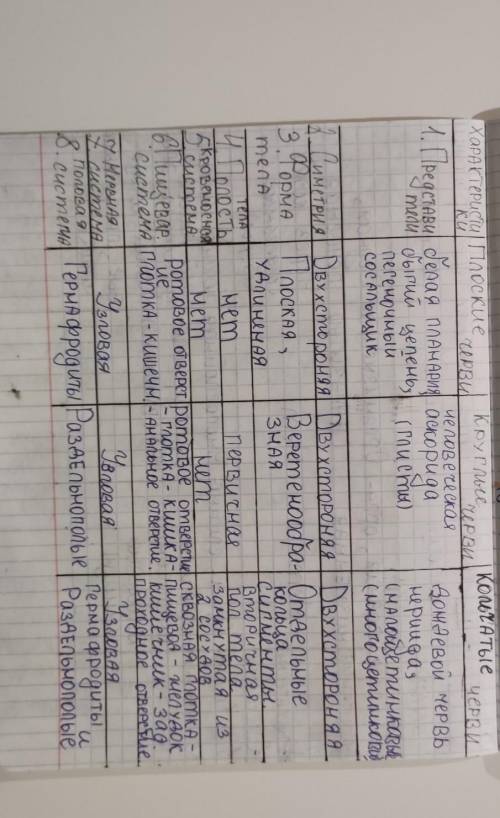 характеристи
ки
Плоские
черви
Круглые
черви
Кольчатые
черви
1. Представи
тели
белая планария
бычий цепень,
печеночный
сосальщик
человеческая
аскорида
(глисты)
дождевой червь
нериида
(малощетинковые
(многощетинковые
2. Симитрия
Двухстороняя
Двухстороняя
Двухстороняя
3. Форма
тела
Плоская,
удлиненая
Веретенообра-
зная
Отдельные
кольца
сигменты
4. Полость
тела
нет
первичная
вторичная
пол тела
5 кровеносная
система
нет
нет
замкнутая из
2 сосудов
6. Пищевар
система
ротовое отверст
ие
глотка - кишечн.
ротовое отверстие
- глотка - кишка -
- анальное отверстие.
сквозная глотка -
пищевод - желудок
кишечник - зад.
проходное отверстие
7. Нервная
система
Узловая
Узловая
Узловая
8. половая
система
Гермафродиты
Раздельнополые
гермафродиты и
Раздельнополые